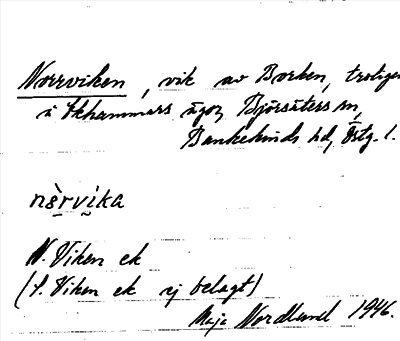 Norrviken, vik av Borken, troligen
å Ekhammars ägor, Björsäters sn,
Bankekinds hd, Östg. l.
nè̱rvi̮ka
N. Viken ek
(S. Viken ek ej belagt)
Maja Nordlund 1946.